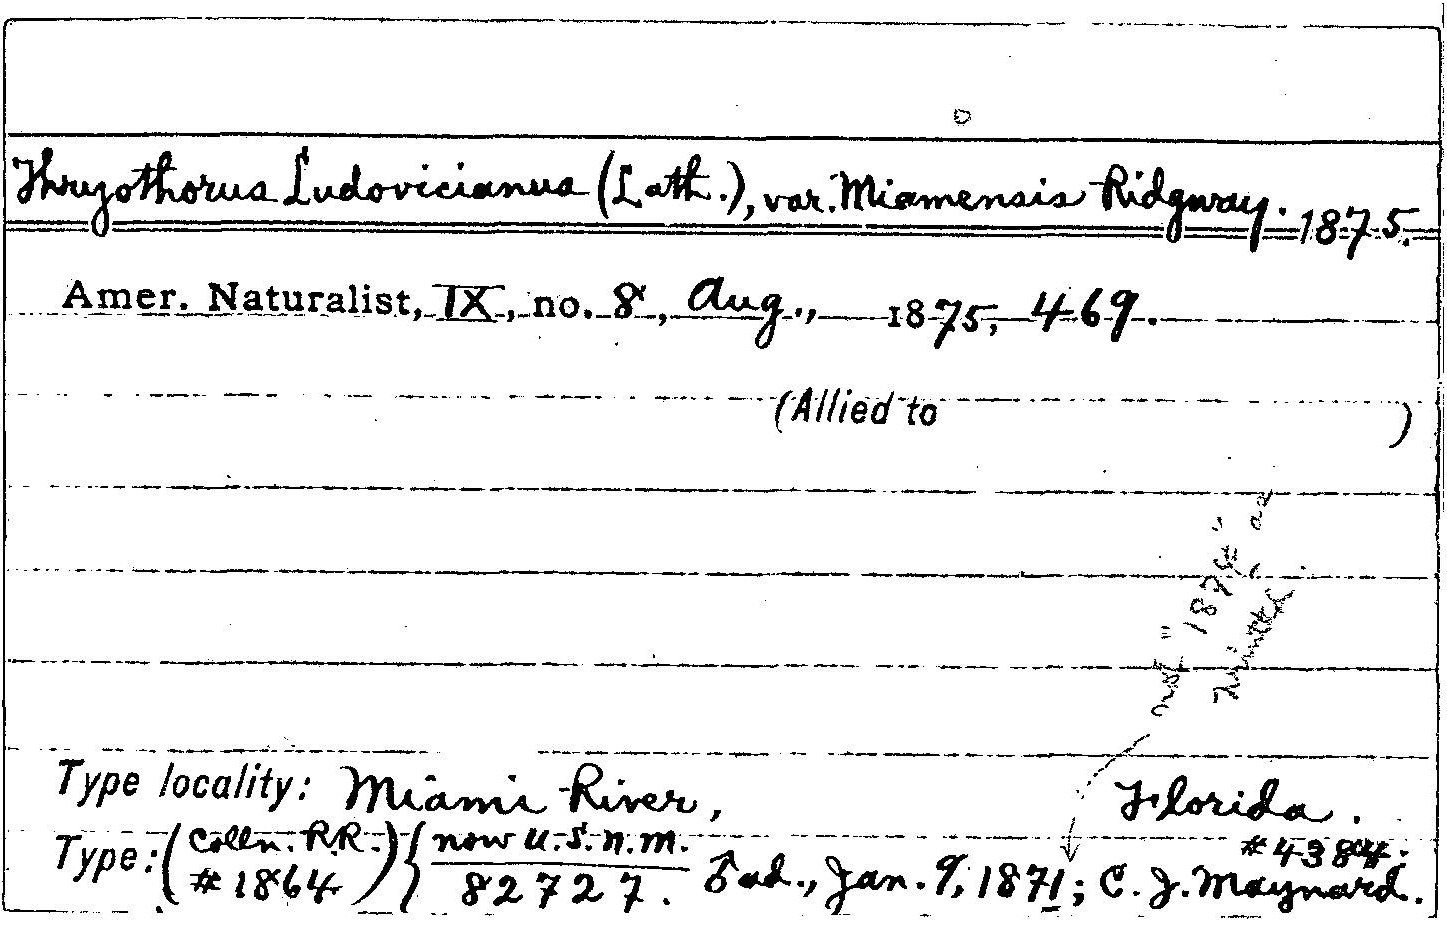 Thryothorus Ludovicianus (Lath.), var. Miamensis Ridgway. 1875.
Amer. Naturalist, IX, no. 8, Aug., 1875, 469.
(Allied to )
not "187" as
Type locality: Miami River, Florida.
Type: (Colln. R.R. #1864) { now U.S.N.M. 82727. ♂ ad., Jan. 9, 1871; C. J. Maynard. #4384.